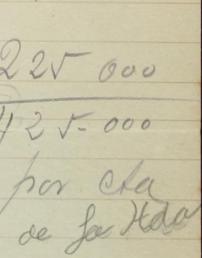 225 000
125-000
por cta
de la Hda